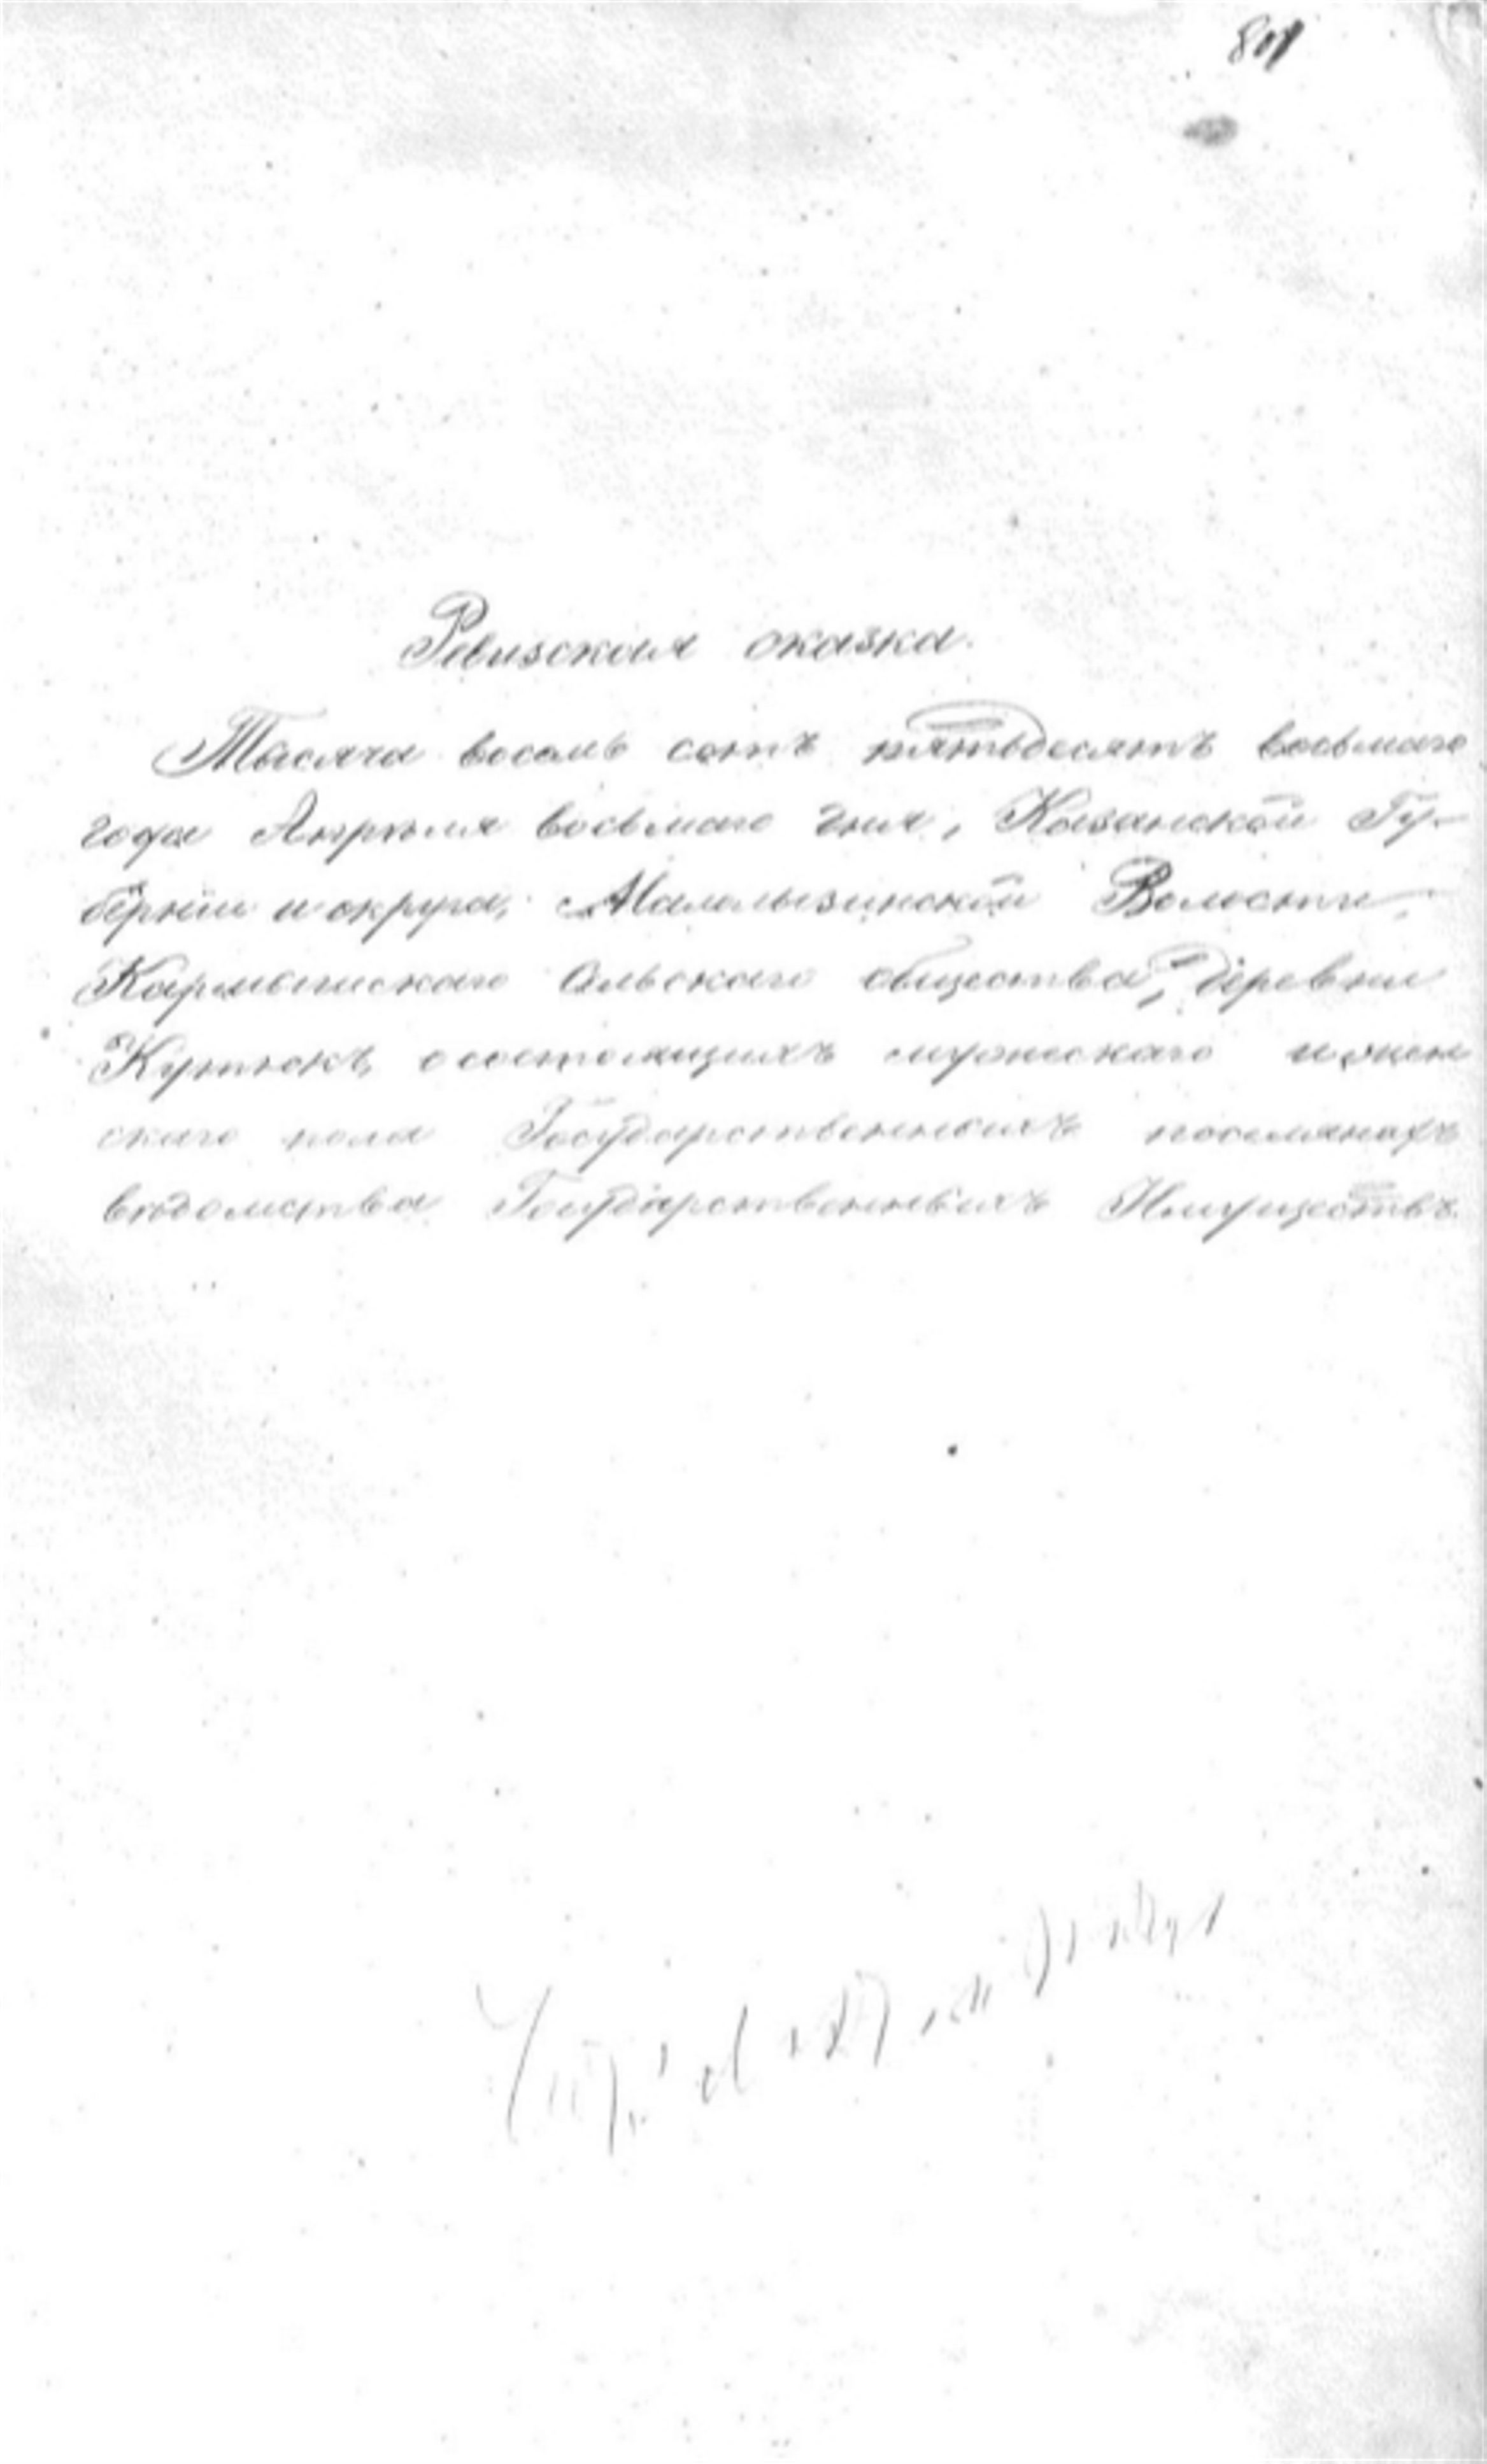 801
Ревизская сказка.
Тысяча восемь сотъ пятьдесятъ восьмаго
года Апрѣля восьмаго дня, Казанской Гу-
берніи и округа, Мамлызинской Волости,
сельскаго общества, деревни
о состоящихъ мужескаго и жен
скаго пола Государственныхъ поселянахъ
вѣдомства Государственныхъ Имуществъ.